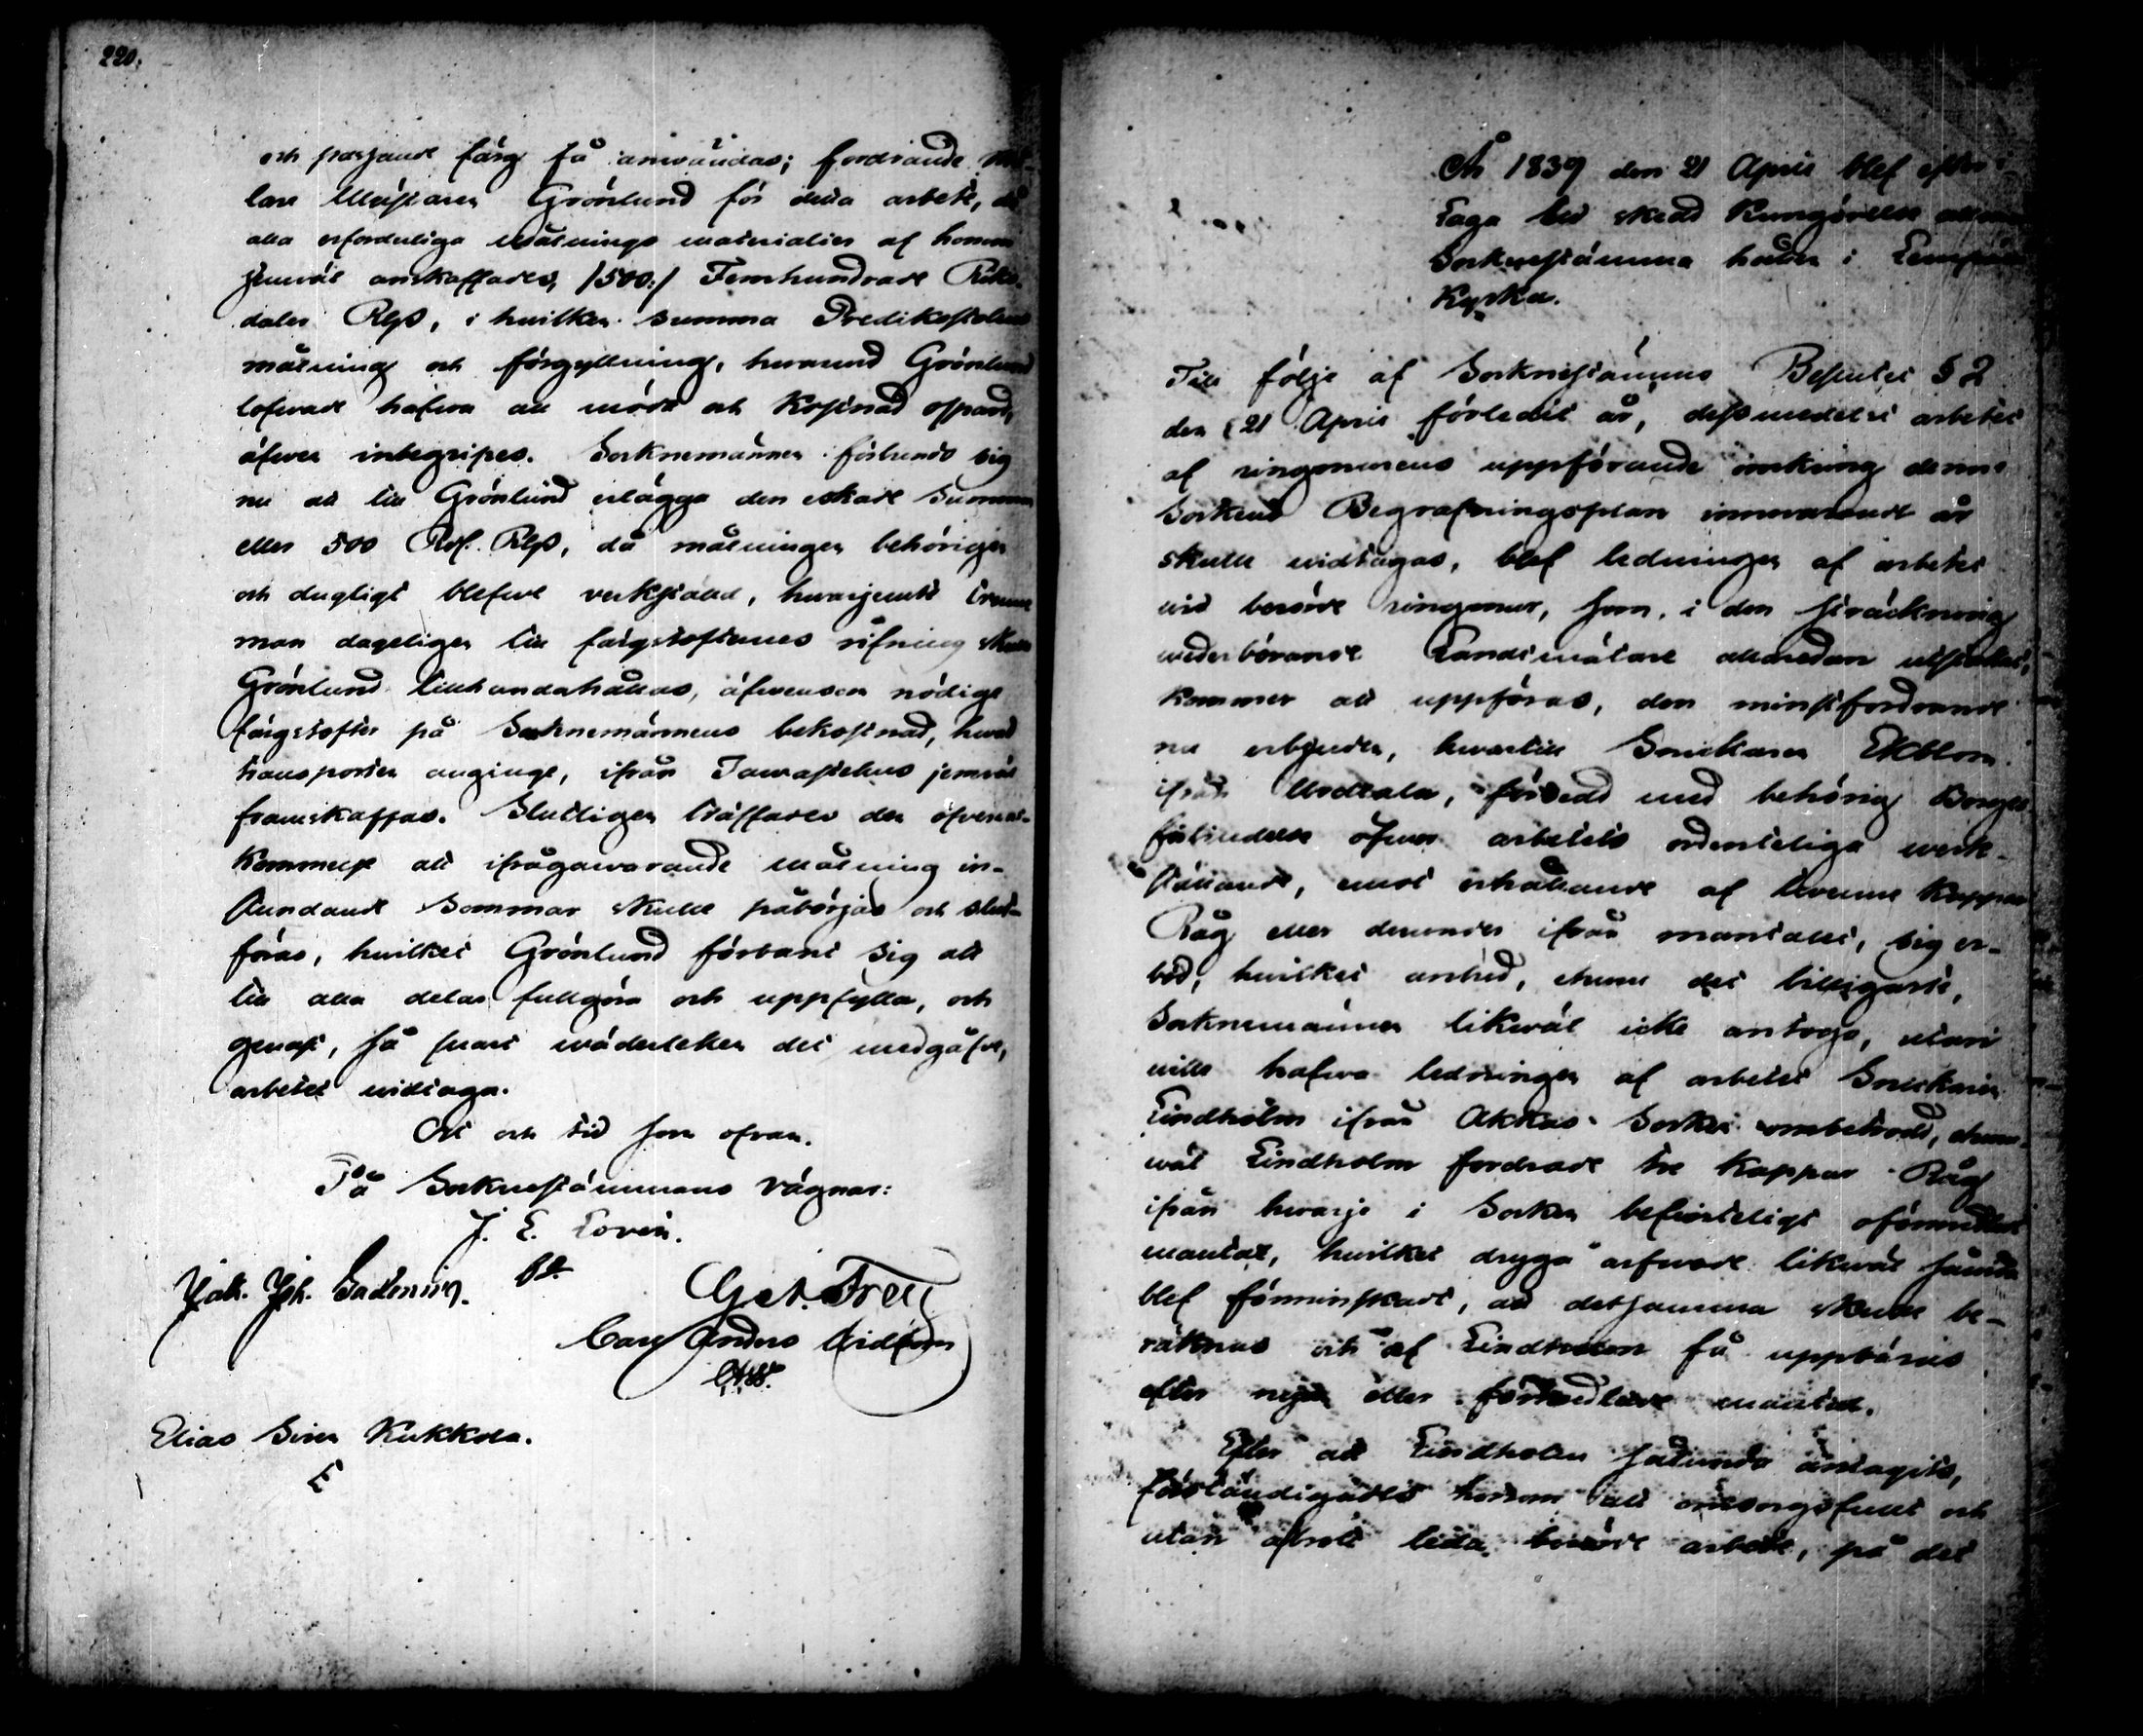 220.
och passande färg få användas; fordrande Må-
lare Mästaren Grönlund för detta arbete, då
alla erforderliga målnings materialier af honom
jemväl anskaffades, /500:/ Femhundrade Riks-
daler Rgs, i hvilken summa Predikostolens
målning och förgyllning, hvarund Grönlund
lofvade hafva all möda och kostnad ospard,
äfven integripes. Socknemännen förbundo sig
nu att till Grönlund erlägga den äskade summan
eller 500 Rd. Rgs, då målningen behörigen
och dugligt blefve verkstäld, hvarjemte trenne
man dageligen till färgstoffernes rifning skulle
Grönlund tillhandahållas, äfvensom nödige
färgstofter på Socknemännens bekostnad, hvad
transporten anginge, ifrån Tavastehus jemväl
framskaffas. Slutligen träffades den öfverens-
kommelse att ifrågavarande målning in-
stundande Sommar skulle påbörjas och slut-
föras, hvilket Grönlund förband sig att
till alla delar fullgöra och uppfylla, och
genast, så snart väderleken det medgåfve,
arbetet vidtaga.
Ort och tid som ofvan.
På Socknestämmans vägnar:
J. E. Lovén.
Jak. Joh.
Carl Anders
Elias Kukkola.
År 1839 den 21 April blef efter i
Laga tid skedd Kungörelse allmän
Socknestämma hållen i Lempäälä
Kyrka.
Till följe af Socknestämmo Beslutet § 2
den 21 April förledit år, dessmedelst arbetet
af ringmurens uppförande omkring denne
Sockens Begrafningsplan innevarande år
skulle vidtagas, blef ledningen af arbetet
vid berörde ringmur, som, i den sträckning
vederbörande Landtmätare allaredan utstakat,
kommer att uppföras, den minstfordrande
nu erbjuden, hvartill Snickaren Ekblom
ifrån Urdiala, försedd med behörig Borges
förbindelse öfver arbetets ordenteliga verk-
ställande, emot erhållande af trenne kappar
Råg eller derunder ifrån mantalet, sig er-
böd, hvilket anbud, ehuru det billigaste,
Socknemännen likväl icke antogo, utan
ville hafva ledningen af arbetet Snickaren
Lindholm ifrån Akkas Socken ombetrodd, ehuru
väl Lindholm fordrade tre kappar Råg
ifrån hvarje i Socken befinteligt oförmedlat
mantal, hvilket dryga arfvode likväl sålunda
blef förminskadt, att detsamma skulle be-
räknas och af Lindholm få uppbäras
efter nya eller förmedlade mantal.
Efter att Lindholm sålunda antagits,
förständigades honom att omsorgsfullt och
utan afbrott leda berörde arbete, på det